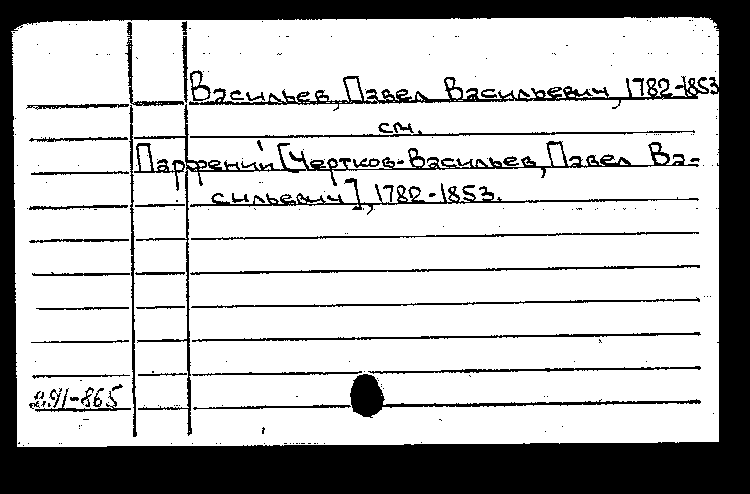 Васильев, Павел Васильевич, 1782-1853
см.
Парфений [Чертков-Васильев, Павел Ва-
сильевич], 1782-1853.
2.91-865